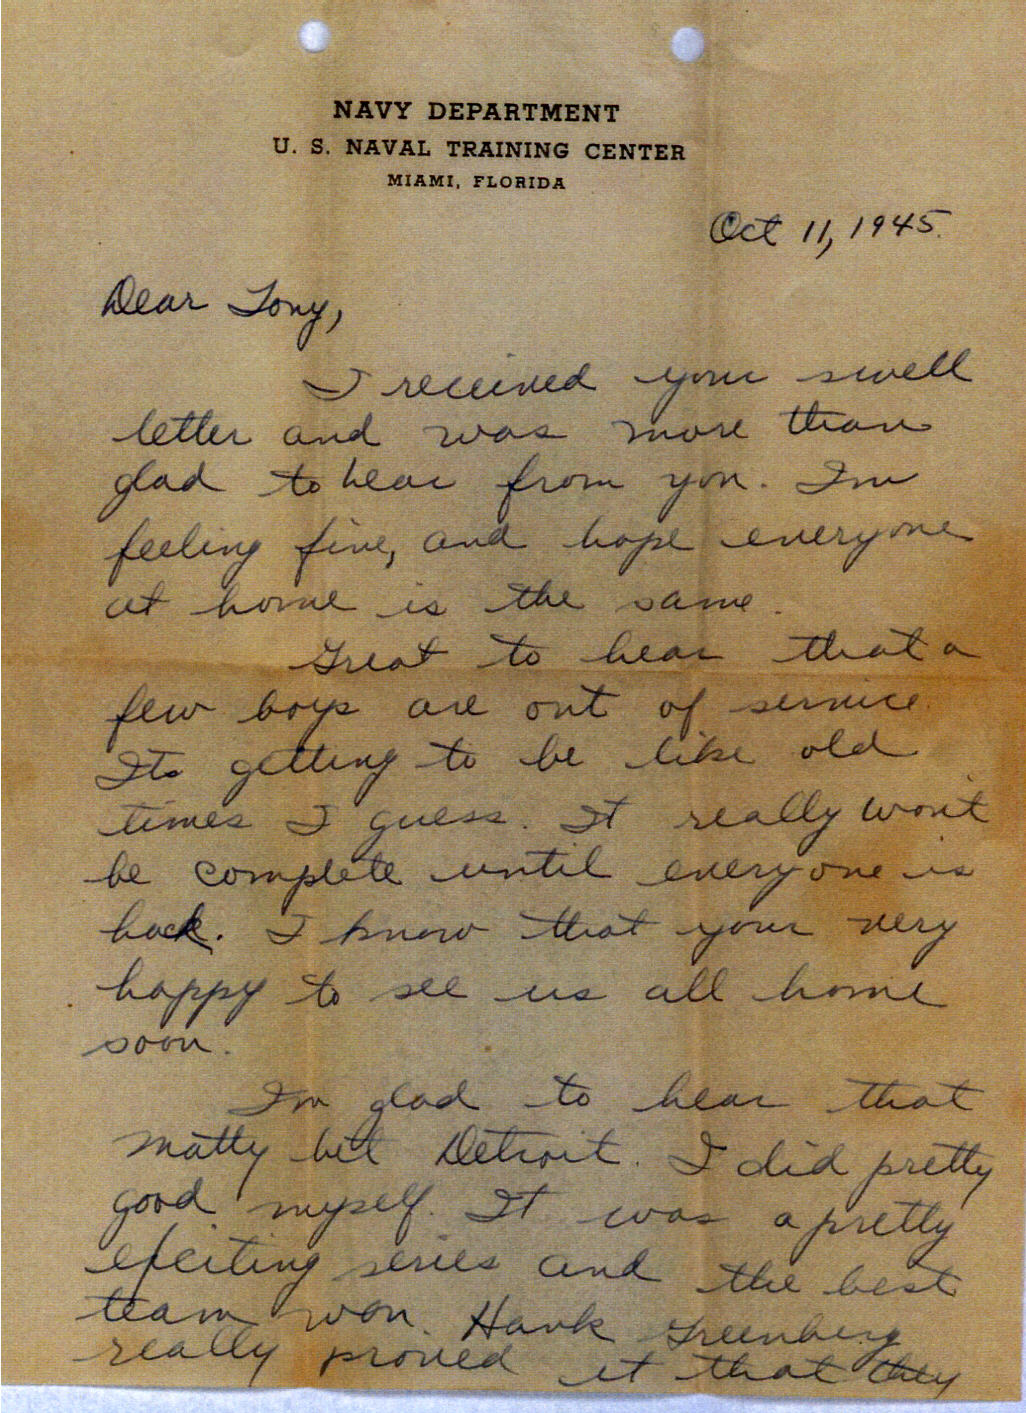 NAVY DEPARTMENT
U. S. NAVAL TRAINING CENTER
MIAMI, FLORIDA
Oct 11, 1945.
Dear Tony,
I received your swell
letter and was more than
glad to hear from you. I'm
feeling fine, and hope everyone
at home is the same.
Great to hear that a
few boys are out of service.
Its getting to be like old
times I guess. It really won't
be complete until everyone is
back. I know that your very
happy to see us all home
soon.
I'm glad to hear that
Matty bet Detroit. I did pretty
good myself. It was a pretty
exciting series and the best
team won. Hank Greenberg
really proved it that they